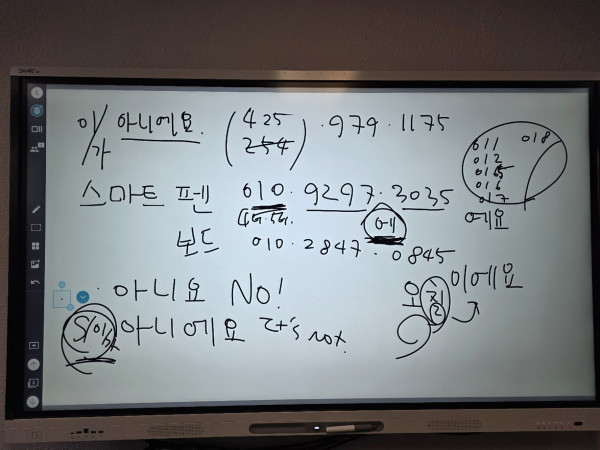 이/가 아니에요. (425 254) .979.1175
011 018
012
015
016
017
스마트 펜 010.9297.3035
에 예요
보드 010.2847.0845
아니요 No! 이에요
S/이/가 아니에요 It's not.